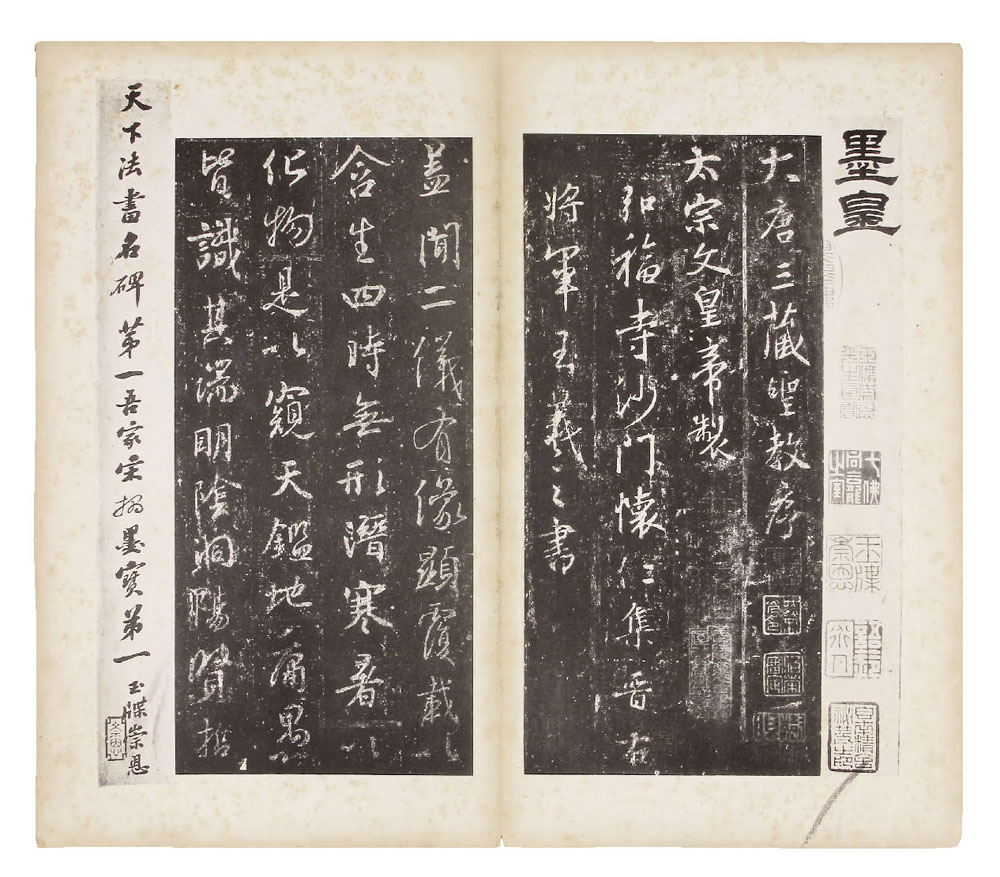 墨皇
大唐三藏聖教序
太宗文皇帝製
弘福寺沙門懷仁集晉右
將軍王羲之書
蓋聞二儀有像顯覆載以
含生四時無形潛寒暑以
化物是以窺天鑑地庸愚
皆識其端明陰洞陽賢哲
天下法書名碑第一吾家宋搨墨寶第一玉牒崇恩